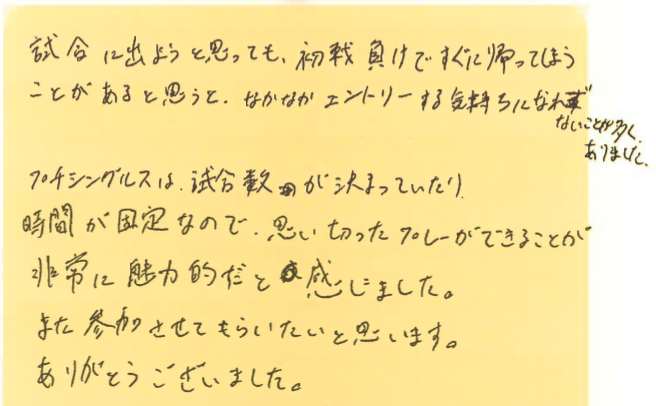 試合に出ようと思っても、初戦負けですぐに帰ってしまう
ことがあると思うと、なかなかエントリーする気持ちになれ
ないことが多く、
ありました。
プチシングルスは、試合数が決まっていたり、
時間が固定なので、思い切ったプレーができることが
非常に魅力的だと感じました。
また参加させてもらいたいと思います。
ありがとうございました。